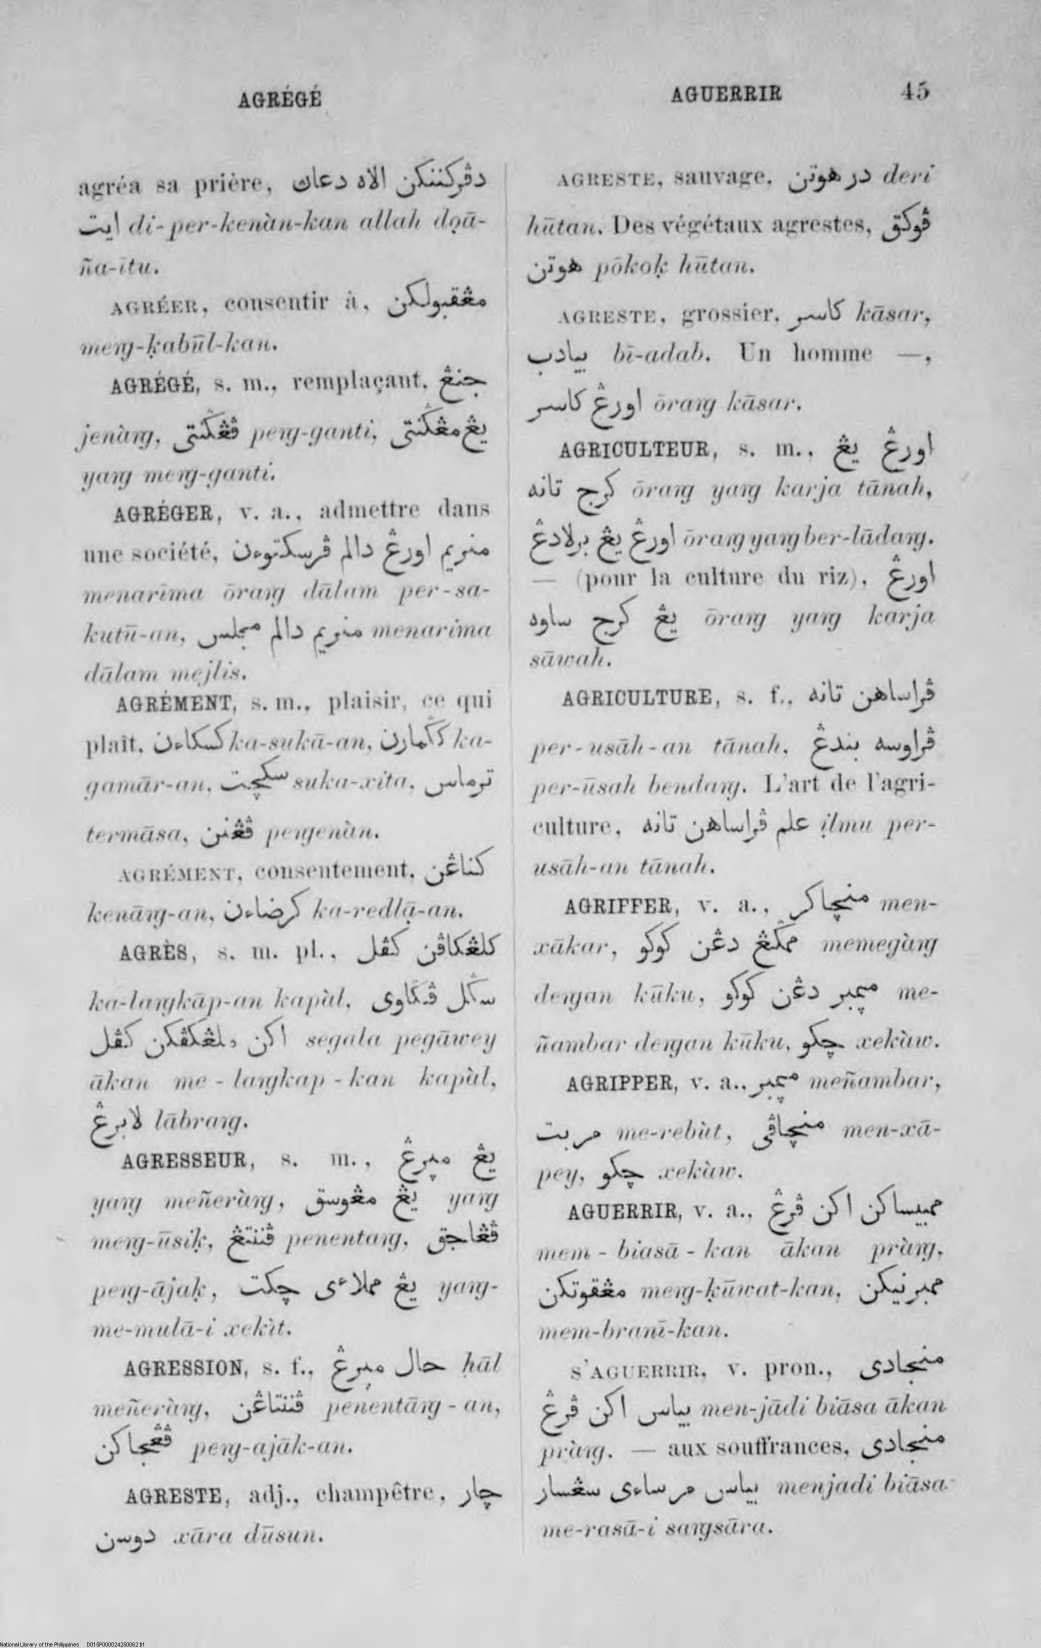 AGRÉGÉ
AGUERRIR 45
agréa sa prière, دڤركننكن الله دعاڽ
ايت di-per-kenàn-kan allah dọā-
ña-ītu.
AGRÉER, consentir à, مڠقبولكن
meng-ḳabūl-kan.
AGRÉGÉ, s. m., remplaçant, جنڠ
jenàng, ڤڠݢنتي peng-ganti, يڠ مڠݢنتي
yang meng-ganti.
AGRÉGER, v. a., admettre dans
une société, منريم اورڠ دالم ڤرسكتوءن
menarīma ōrang dālam per-sa-
kutū-an, منريم دالم مجلس menarima
dālam mejlis.
AGRÉMENT, s. m., plaisir, ce qui
plaît, كسكاءن ka-sukā-an, كݢمارن ka-
gamār-an, سكچيت suka-xita, ترماس
termāsa, ڤڠنن pengenàn.
AGRÉMENT, consentement, كناڠن
kenāng-an, كرضاءن ka-redlạ-an.
AGRÈS, s. m. pl., كلڠكاڤن كڤل
ka-langkāp-an kapàl, سݢل ڤݢاوي
اكن ملڠكڤكن كڤل segala pegāwey
ākan me-langkap-kan kapàl,
لابرڠ lābrang.
AGRESSEUR, s. m., يڠ مڽرڠ
yang meñeràng, يڠ مڠوسق yang
meng-ūsiḳ, ڤننتڠ penentang, ڤڠاجق
peng-ājaḳ, يڠ مملاءي چكت yang-
me-mulā-i xekìt.
AGRESSION, s. f., حال مڽرڠ ḥāl
meñeràng, ڤننتاڠن penentāng-an,
ڤڠجاكن peng-ajāk-an.
AGRESTE, adj., champêtre, چار
دوسن xāra dūsun.
AGRESTE, sauvage, در هوتن deri
hūtan. Des végétaux agrestes, ڤوكق
هوتن pōkoḳ hūtan.
AGRESTE, grossier, كاسر kāsar,
بيادب bī-adab. Un homme —,
اورڠ كاسر ōrang kāsar.
AGRICULTEUR, s. m., اورڠ يڠ
كرج تانه ōrang yang karja tānah,
اورڠ يڠ برلادڠ ōrang yang ber-lādang.
— (pour la culture du riz), اورڠ
يڠ كرج ساوه ōrang yang karja
sāwah.
AGRICULTURE, s. f., ڤراساهن تانه
per-usāh-an tānah, ڤراوسه بندڠ
per-ūsah bendang. L'art de l'agri-
culture, علم ڤراساهن تانه ịlmu per-
usāh-an tānah.
AGRIFFER, v. a., منچاكر men-
xākar, ممݢڠ دڠن كوكو memegàng
dengan kūku, مڽمبر دڠن كوكو me-
ñambar dengan kūku, چكو xekàw.
AGRIPPER, v. a., مڽمبر meñambar,
مربت me-rebùt, منچاڤي men-xā-
pey, چكو xekàw.
AGUERRIR, v. a., ممبيساكن اكن ڤرڠ
mem-biasā-kan ākan pràng,
مڠقوتكن meng-ḳūwat-kan, ممبرنيكن
mem-branī-kan.
S'AGUERRIR, v. pron., منجادي
بياس اكن ڤرڠ men-jādi biāsa ākan
pràng. — aux souffrances, منجادي
بياس مرساءي سڠسار menjadi biāsa
me-rasā-i sangsāra.
National Library of the Philippines